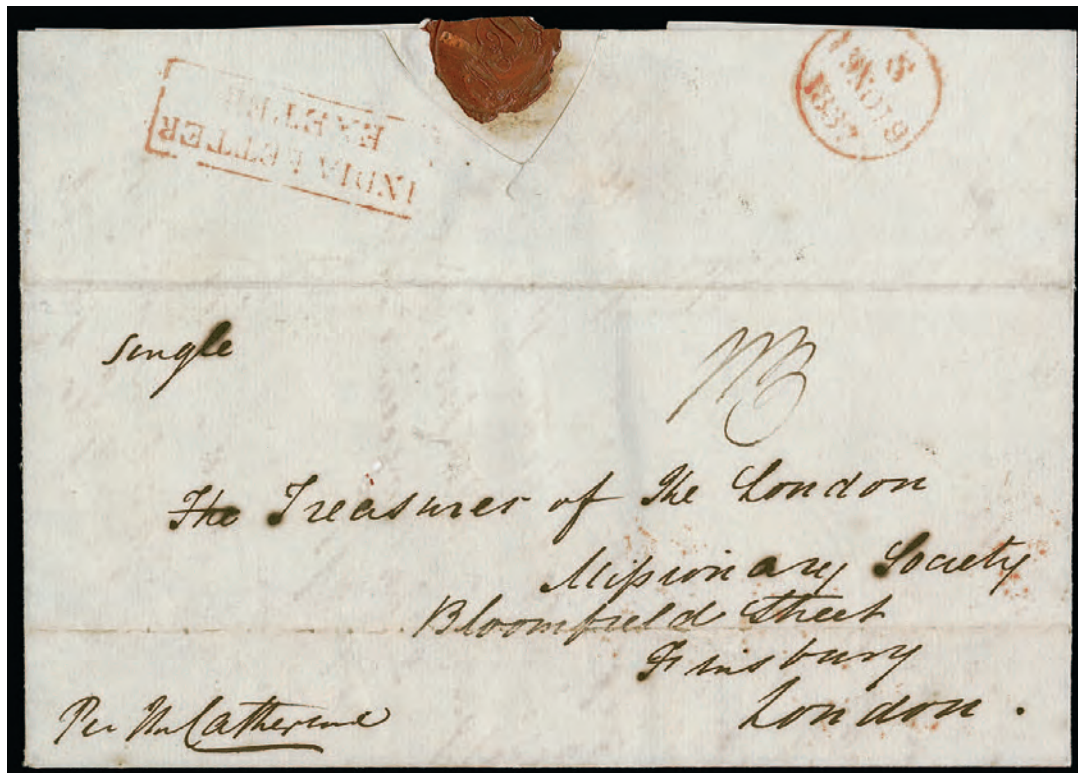 INDIA LETTER
EXETER
single
The Treasurer of the London
Missionary Society
Bloomfield Street
Finsbury
London.
Per the Catherine